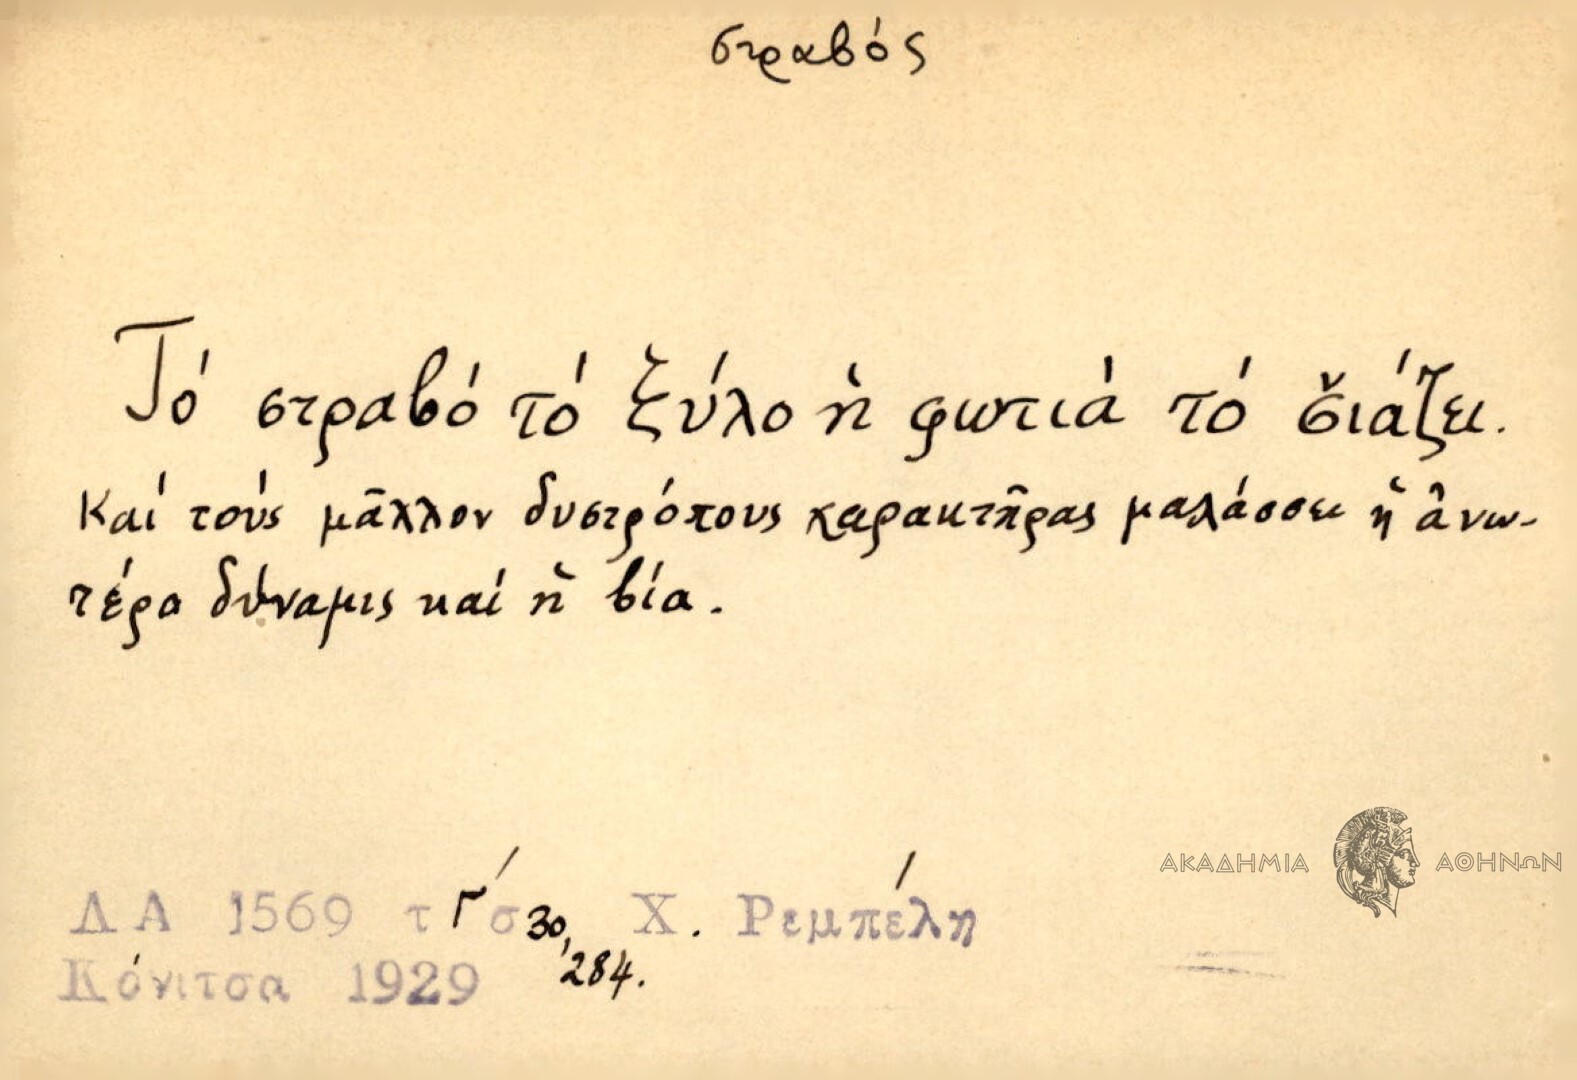 στραβός
Τό στραβό τό ξύλο ἡ φωτιά τό σ̌ιάζει.
Καί τούς μᾶλλον δυστρόπους χαρακτῆρας μαλάσσει ἡ ἀνω-
τέρα δύναμις καί ἡ βία.
ΑΚΑΔΗΜΙΑ ΑΘΗΝΩΝ
ΛΑ 1569 τ Γ΄ σ 30, Χ. Ρεμπέλη
284.
Κόνιτσα 1929